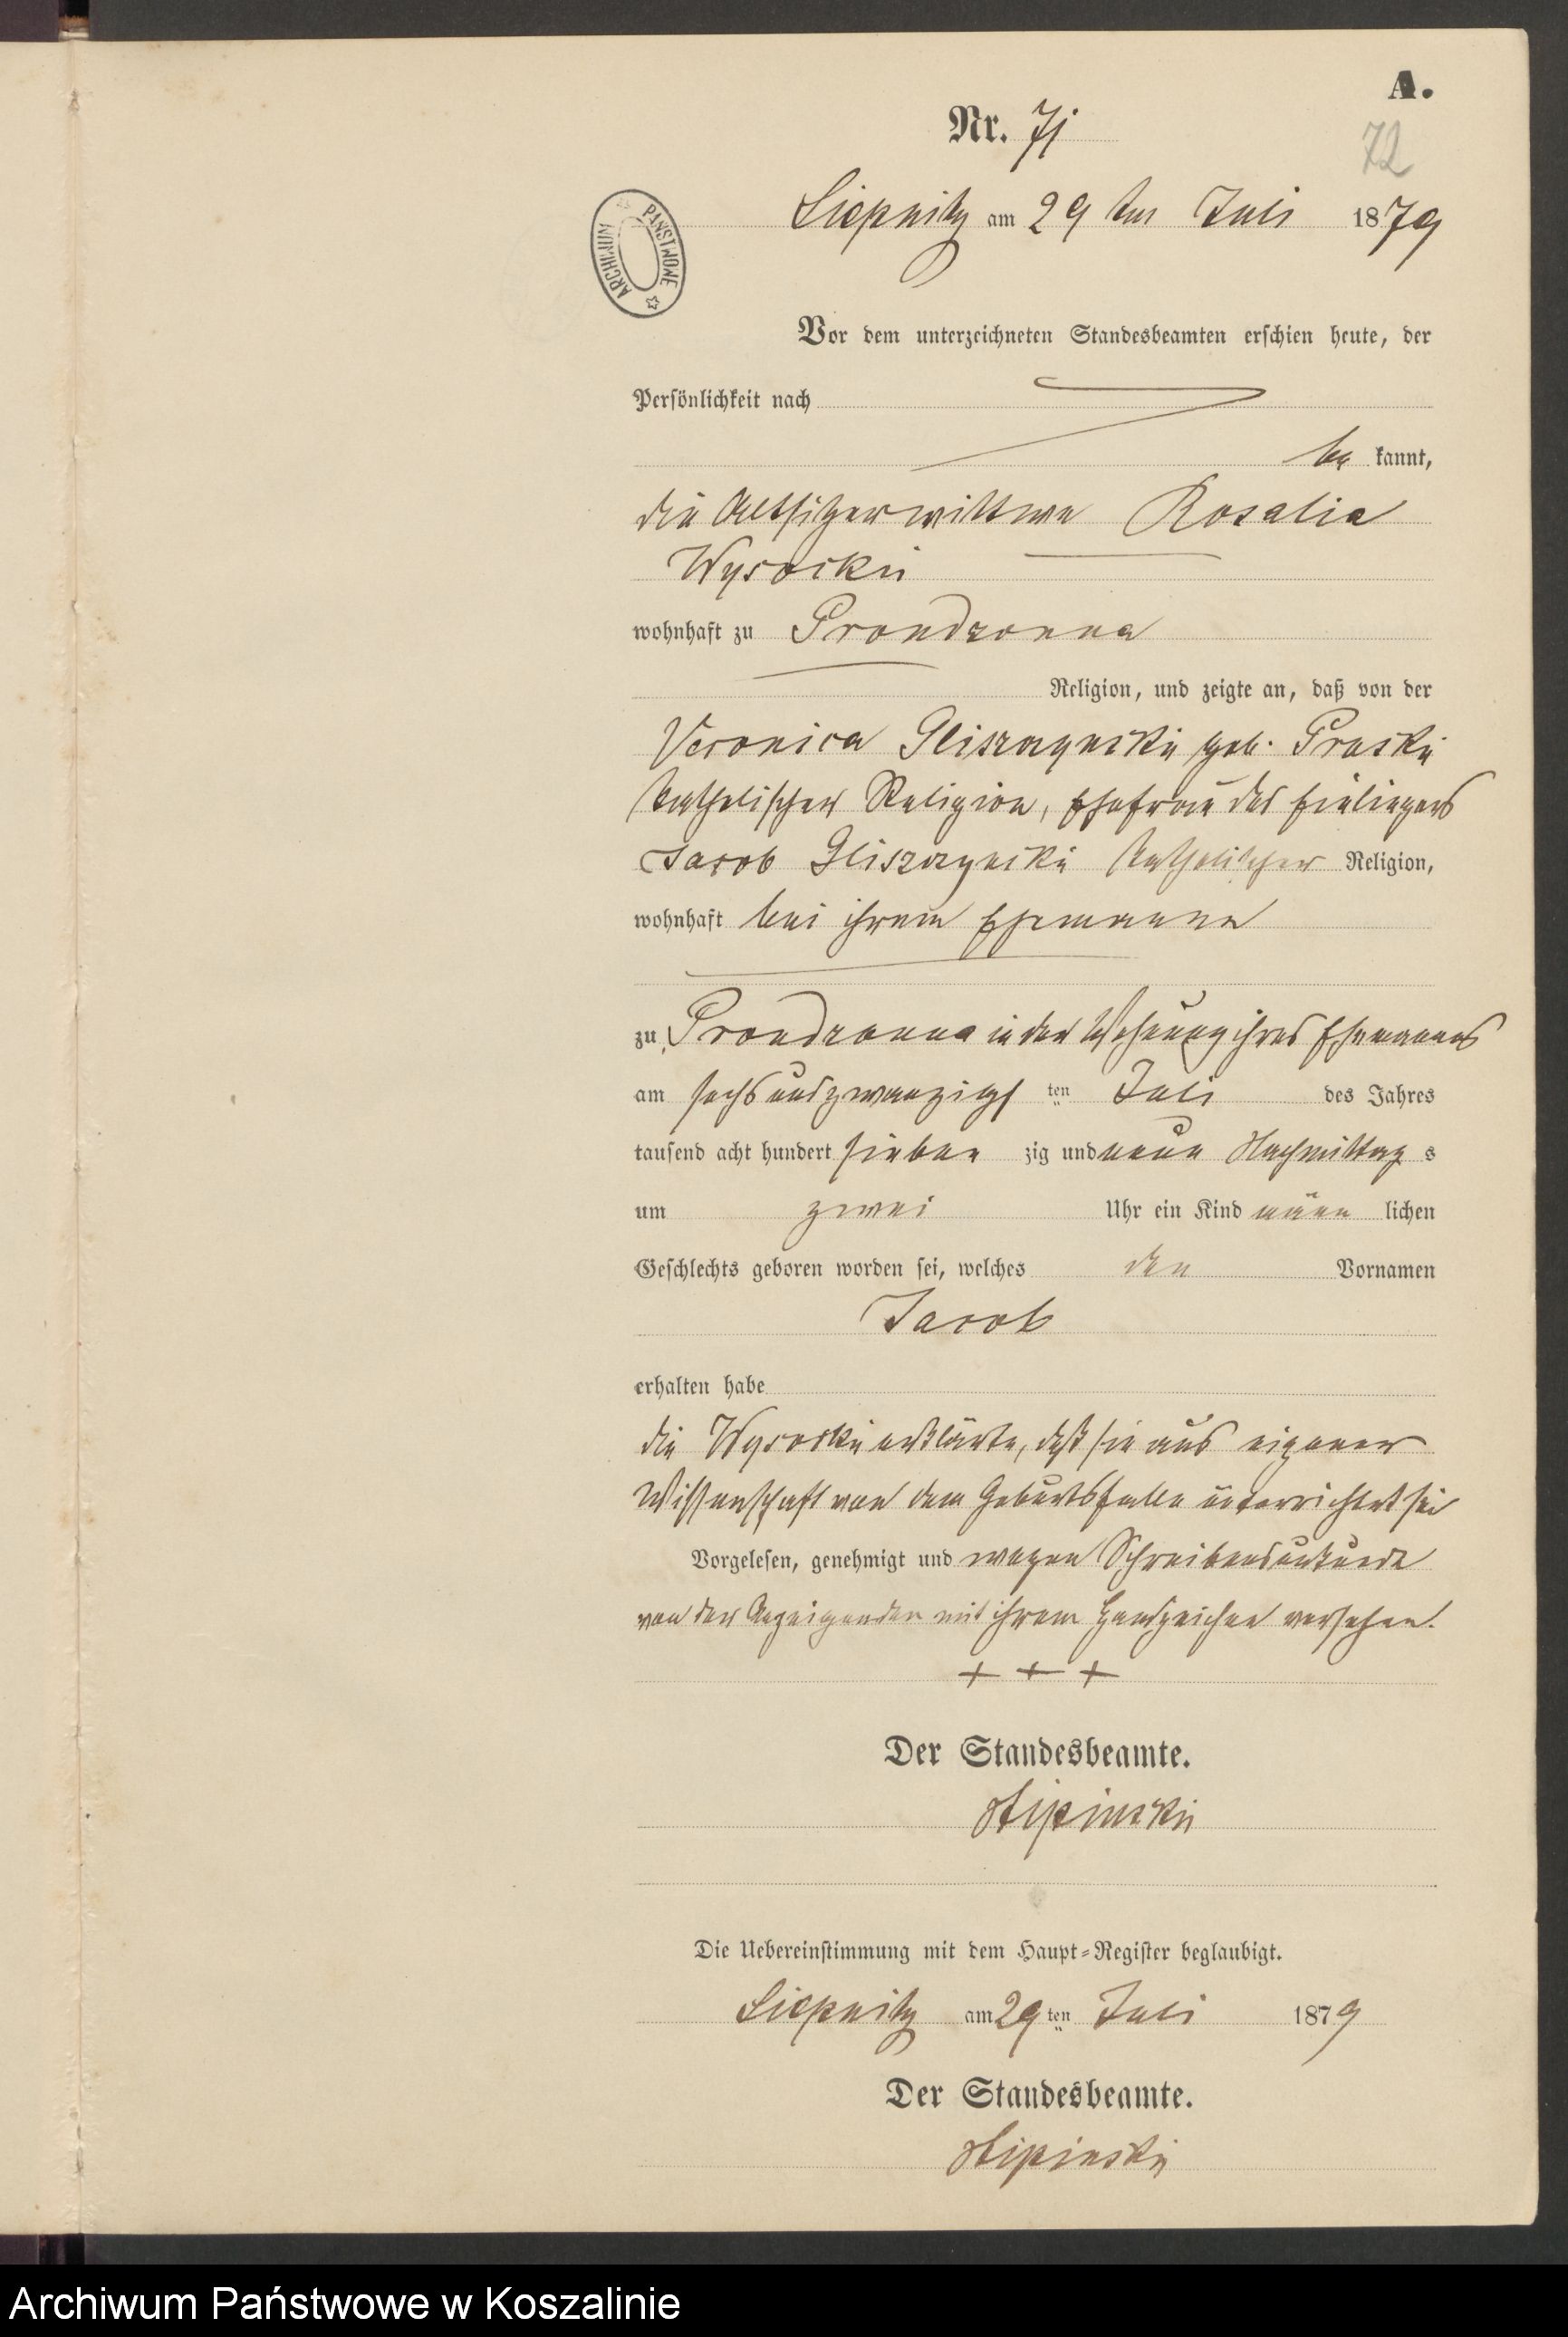 A.
Nr. 71
72
ARCHIWUM PAŃSTWOWE
Liepnitz am 29 ten Juli 1879
Vor dem unterzeichneten Standesbeamten erschien heute, der
Persönlichkeit nach
be kannt,
die Altsitzerwittwe Rosalia
Wysocki
wohnhaft zu Prondzonna
Religion, und zeigte an, daß von der
Veronica Gliszczynski geb. Praski
katholischer Religion, Ehefrau des Einliegers
Jacob Gliszczynski katholischer Religion,
wohnhaft bei ihrem Ehemanne
zu Prondzonna in der Wohnung ihres Ehemannes
am sechsundzwanzigs ten Juli des Jahres
tausend acht hundert sieben zig und neun Nachmittag s
um zwei Uhr ein Kind männ lichen
Geschlechts geboren worden sei, welches den Vornamen
Jacob
erhalten habe
die Wysocki erklärte, daß sie aus eigener
Wissenschaft von dem Geburtsfalle unterrichtet sei
Vorgelesen, genehmigt und wegen Schreibensunkunde
von der Anzeigenden mit ihrem Handzeichen versehen.
+ + +
Der Standesbeamte.
Lipinski
Die Uebereinstimmung mit dem Haupt-Register beglaubigt.
Liepnitz am 29 ten Juli 1879
Der Standesbeamte.
Lipinski
Archiwum Państwowe w Koszalinie